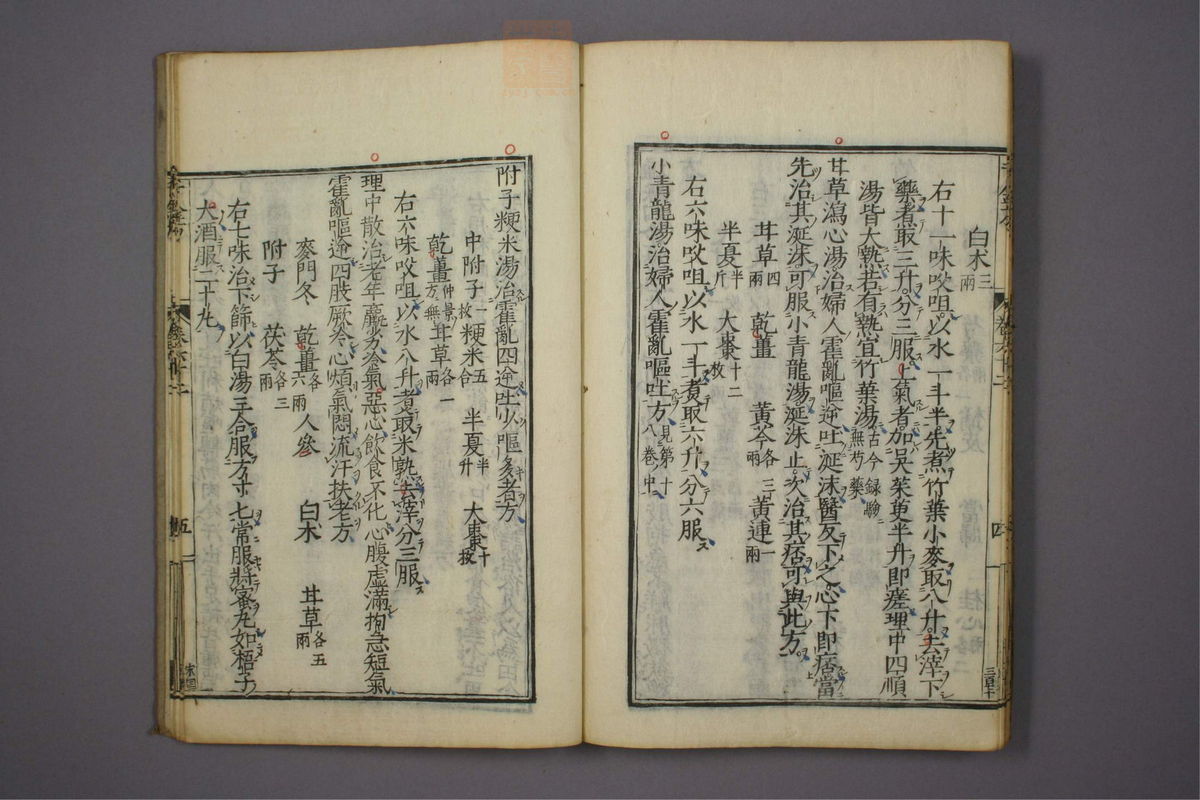 白朮三兩
右十一味㕮咀以水一斗半先煮竹葉小麥取八升去滓下
藥煮取三升分三服上氣者加吳茱萸半升即瘥理中四順
湯皆大熟若有熱宜竹葉湯古今録驗無芍藥
甘草瀉心湯治婦人霍亂嘔逆吐涎沫醫反下之心下即痞當
先治其涎沫可服小青龍湯涎沫止次治其痞可與此方
甘草四兩 乾薑 黃芩各三兩 黃連一兩
半夏半斤 大棗十二枚
右六味㕮咀以水一斗煮取六升分六服
小青龍湯治婦人霍亂嘔吐方見第十八卷中
四
附子粳米湯治霍亂四逆吐少嘔多者方
中附子一枚 粳米五合 半夏半升 大棗十枚
乾薑仲景方無 甘草各一兩
右六味㕮咀以水八升煮取米熟去滓分三服
理中散治老年羸劣冷氣惡心飲食不化心腹虛滿拘急短氣
霍亂嘔逆四肢厥冷心煩氣悶流汗扶老方
麥門冬 乾薑各六兩 人參 白朮 甘草各五兩
附子 茯苓各三兩
右七味治下篩以白湯三合服方寸匕常服將蜜丸如梧子
大酒服二十丸
五